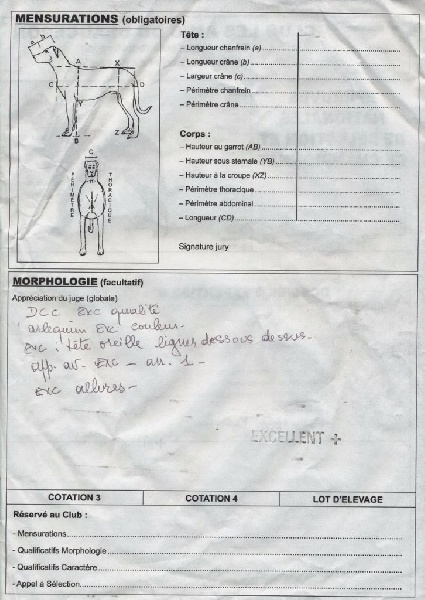 MENSURATIONS (obligatoires)
Tête :
– Longueur chanfrein (a)
– Longueur crâne (b)
– Largeur crâne (c)
– Périmètre chanfrein
– Périmètre crâne
A X
C D
B Z
C
PERIMETRE THORACIQUE
Corps :
– Hauteur au garrot (AB)
– Hauteur sous sternale (YB)
– Hauteur à la croupe (XZ)
– Périmètre thoracique
– Périmètre abdominal
– Longueur (CD)
Signature jury
MORPHOLOGIE (facultatif)
Appréciation du juge (globale)
DCC exc qualité
arlequin exc couleur
exc : tête oreille lignes dessous dessus.
app. av. exc – arr. 1 –
exc allures –
EXCELLENT +
COTATION 3 COTATION 4 LOT D'ELEVAGE
Réservé au Club :
– Mensurations
– Qualificatifs Morphologie
– Qualificatifs Caractère
– Appel à Sélection